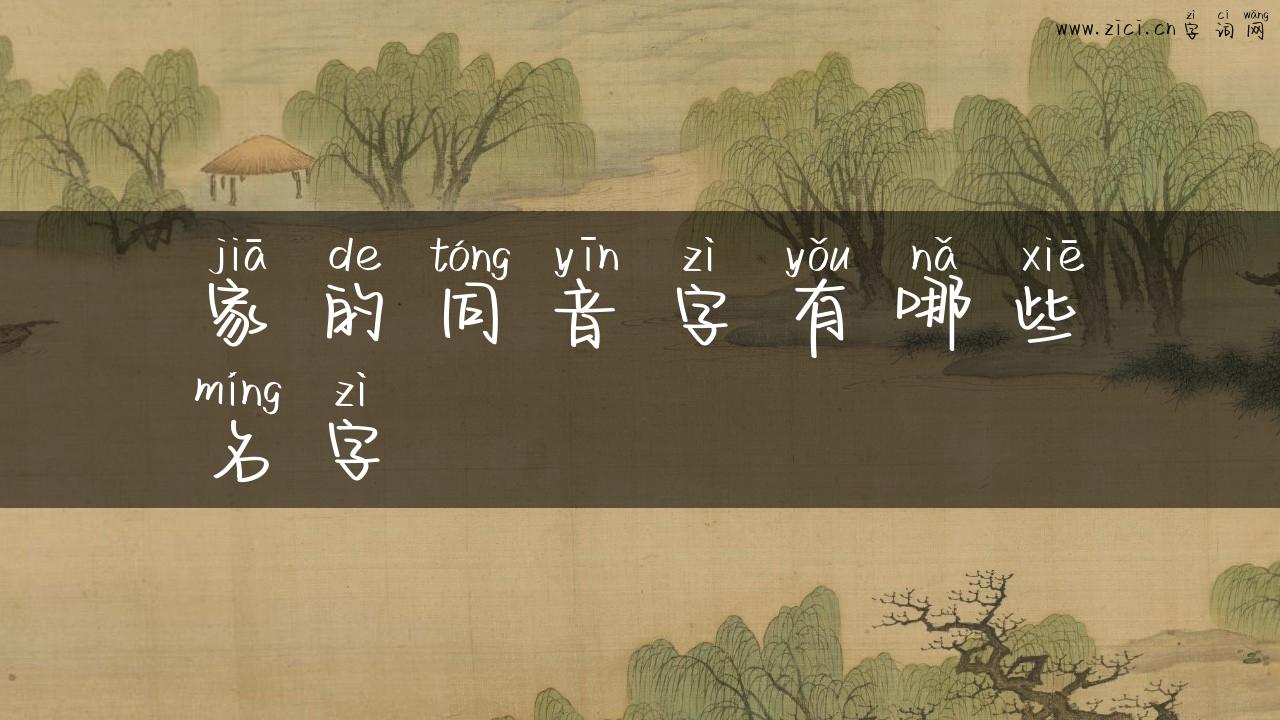 zì cí wǎng
www.zici.cn 字 词 网
jiā de tóng yīn zì yǒu nǎ xiē
家 的 同 音 字 有 哪 些
míng zì
名 字